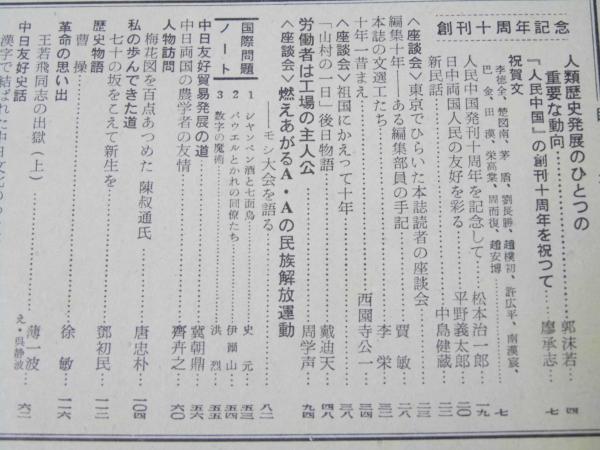 創刊十周年記念
人類歴史発展のひとつの
重要な動向……郭沫若…四
『人民中国』の創刊十周年を祝って……廖承志…七
祝賀文……七
李徳全、楚図南、茅盾、劉長勝、趙樸初、許広平、南漢宸、
巴金、田漢、栄高棠、周而復、趙安博
人民中国発刊十周年を記念して……松本治一郎…一九
日中両国人民の友好を彩る……平野義太郎…二〇
新民話……中島健蔵…二三
〈座談会〉東京でひらいた本誌読者の座談会……二三
編集十年——ある編集部員の手記……賈敏…二八
本誌の文選工たち……李栄…三二
十年一昔まえ……西園寺公一…三四
〈座談会〉祖国にかえって十年……三八
「山村の一日」後日物語……戴廸天…四八
労働者は工場の主人公……周学声…九四
〈座談会〉燃えあがるA・Aの民族解放運動
——モシ大会を語る……八二
国際問題ノート
1 シャンペン酒と七面鳥……史元…五三
2 パウエルとかれの同僚たち……伊爾山…五四
3 数字の魔術……洪烈…五五
中日友好貿易発展の道……冀朝鼎…五六
中日両国の農学者の友情……齊卉之…六〇
人物訪問
梅花図を百点あつめた 陳叔通氏……唐忠朴…一〇四
私の歩んできた道
七十の坂をこえて新生を……鄧初民…一一二
歴史物語
曹操……徐敏…一一六
革命の思い出
王若飛同志の出獄(上)……薄一波…六二
え・呉静波
中日友好史話
漢字で結ばれた中日文化の